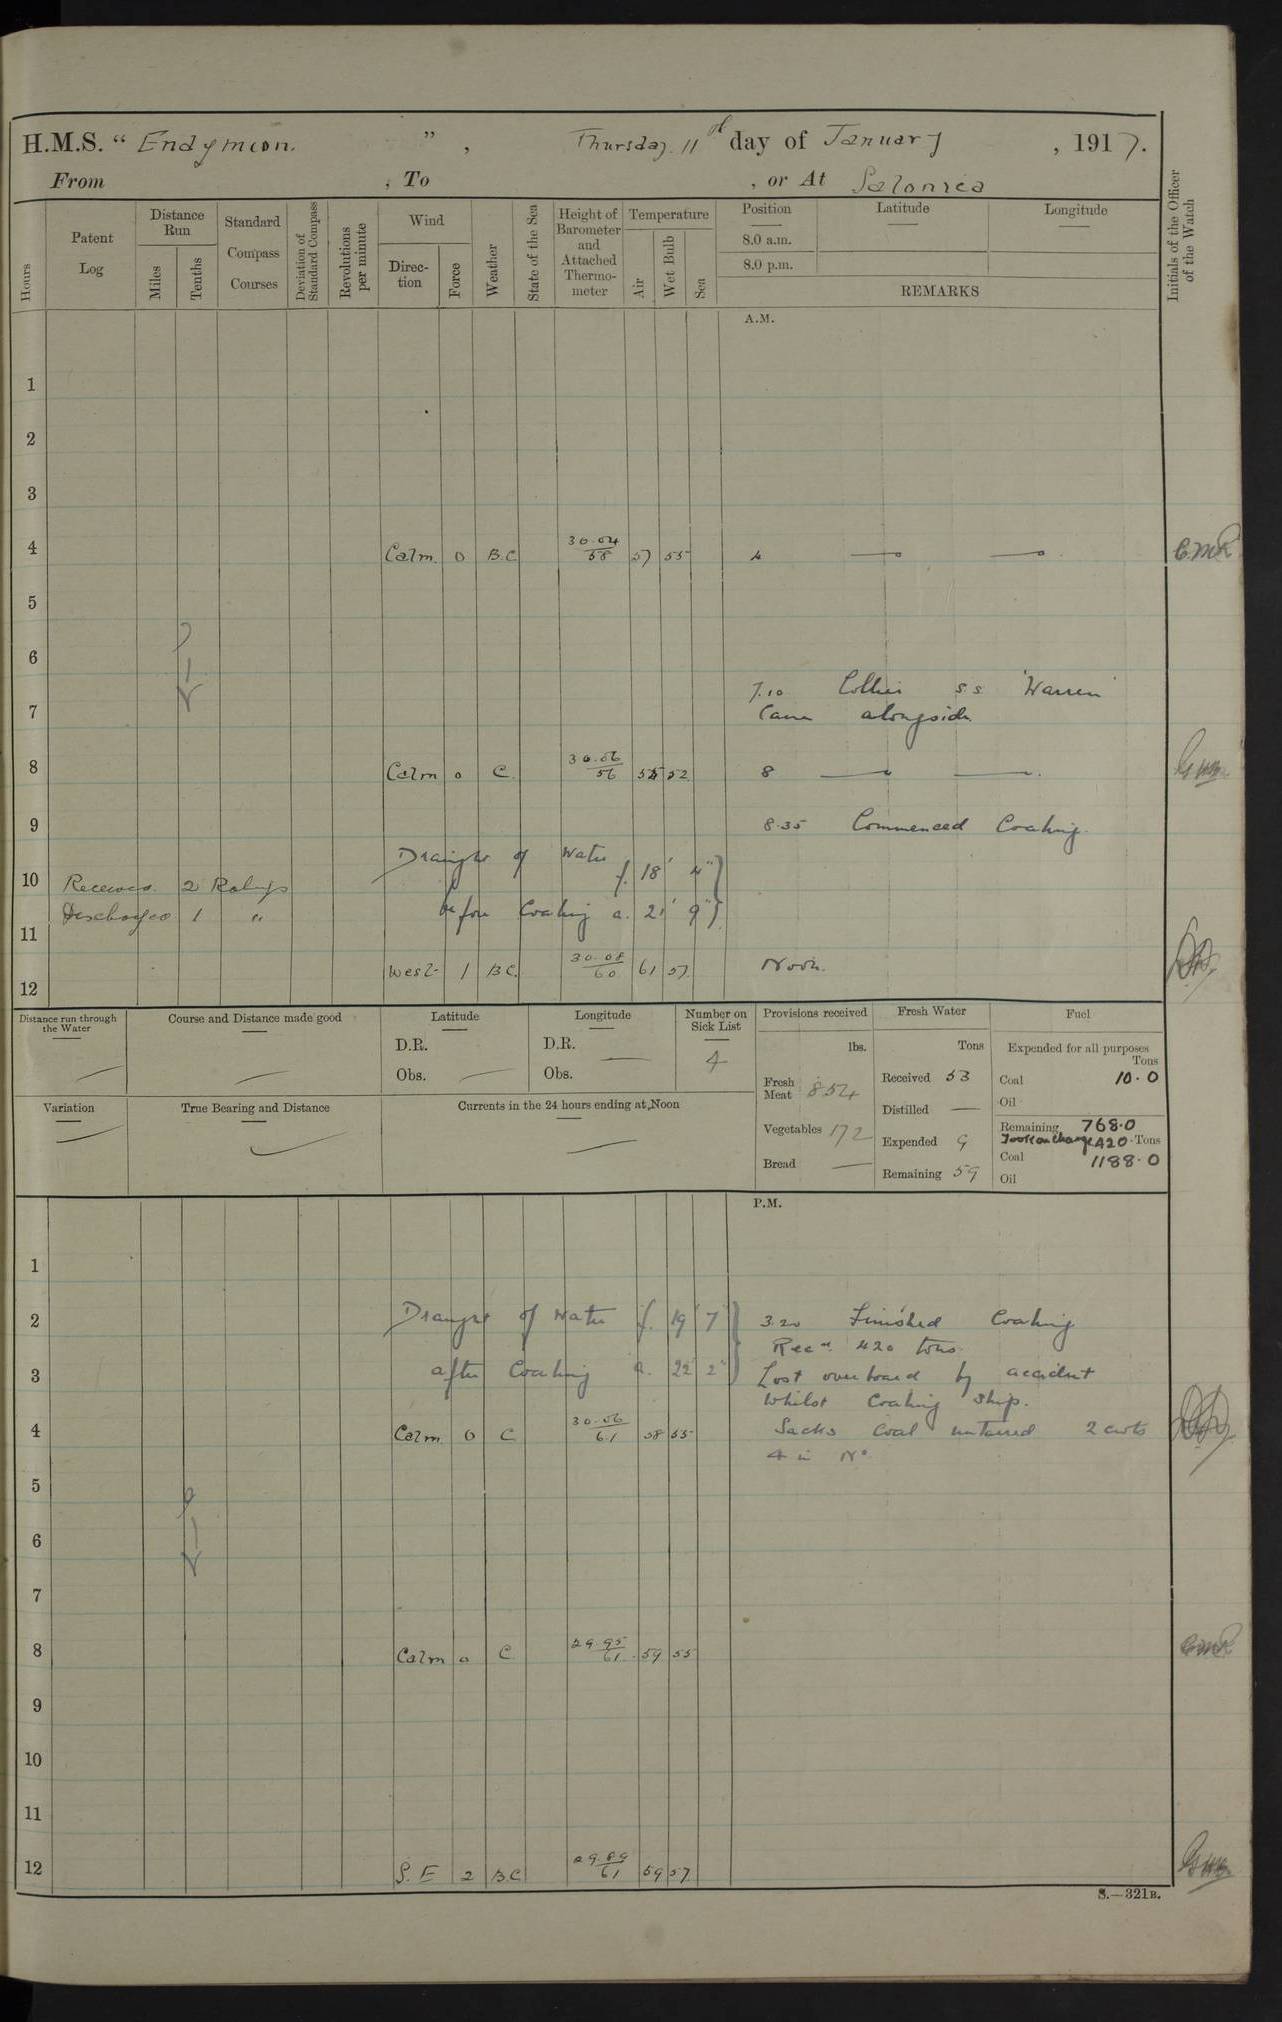 H.M.S. " Endymion. ", Thursday 11th day of January, 1917.
From , To , or At Salonica
Hours
Patent Log
Distance Run
Miles
Tenths
Standard Compass Courses
Deviation of Standard Compass
Revolutions per minute
Wind
Direction
Force
Weather
State of the Sea
Height of Barometer and Attached Thermometer
Temperature
Air
Wet Bulb
Sea
Position
8.0 a.m.
8.0 p.m.
Latitude
Longitude
REMARKS
Initials of the Officer of the Watch
A.M.
1
2
3
4 Calm. 0 B.C 30.04/58 57 55 4
5
6
7.10 Collier s.s 'Warren'
7 Came alongside.
8 Calm 0 C. 30.06/56 55 52 8
9 8.35 Commenced Coaling.
Draught of Water f. 18' 4"
10 Received. 2 Ratings
Discharged 1 " before Coaling a. 21' 9"
11
West 1 B.C. 30.08/60 61 57. Noon.
12
Distance run through the Water
Course and Distance made good
Latitude
D.R.
Obs.
Longitude
D.R.
Obs.
Number on Sick List
4
Variation
True Bearing and Distance
Currents in the 24 hours ending at Noon
Provisions received
lbs.
Fresh Meat 854
Vegetables 172
Bread
Fresh Water
Tons
Received 53
Distilled
Expended 9
Remaining 59
Fuel
Expended for all purposes
Tons
Coal 10.0
Oil
Remaining 768.0
Took on charge 420 Tons
Coal 1188.0
Oil
P.M.
1
2 Draught of Water f. 19' 7" 3.20 Finished Coaling
Recd. 420 tons.
3 after Coaling a. 22' 2" Lost overboard by accident
Whilst Coaling Ship.
4 Calm. 0 C 30.06/61 58 55 Sacks Coal untarred 2 cwts
4 in No
5
6
7
8 Calm 0 C 29.95/61 59 55
9
10
11
12 S. E 2 B.C 29.89/61 59 57.
S.—321B.